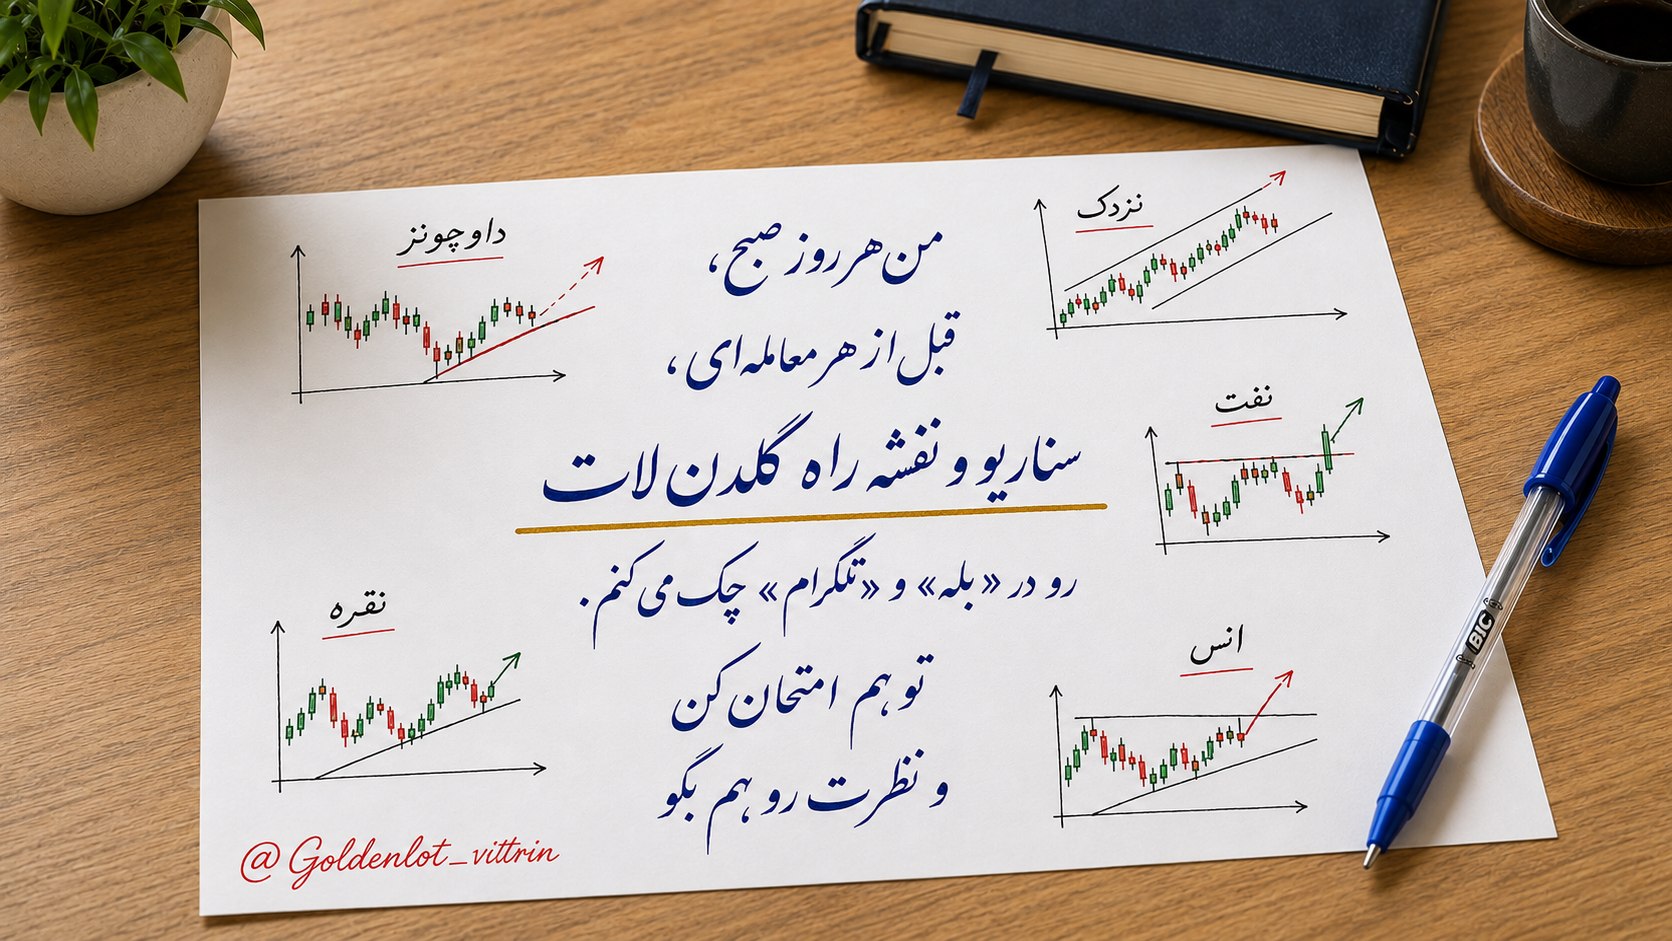 داوجونز
نزدک
من هر روز صبح،
قبل از هر معامله‌ای،
نفت
سناریو و نقشه راه گلدن لات
رو در «بله» و «تلگرام» چک می‌کنم.
نقره
انس
تو هم امتحان کن
و نظرت رو هم بگو
@Goldenlot_vittrin
BIC